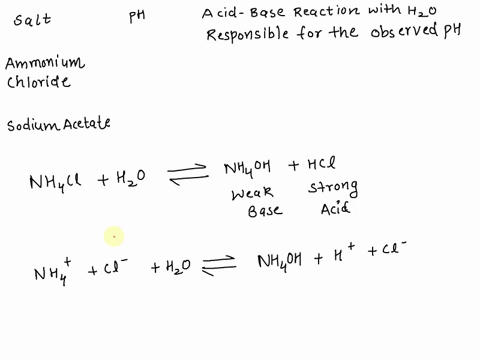 Salt PH Acid-Base Reaction with H2O
Responsible for the observed PH
Ammonium
Chloride
Sodium Acetate
NH4Cl + H2O ⇌ NH4OH + HCl
Weak Strong
Base Acid
NH4+ + Cl- + H2O ⇌ NH4OH + H+ + Cl-